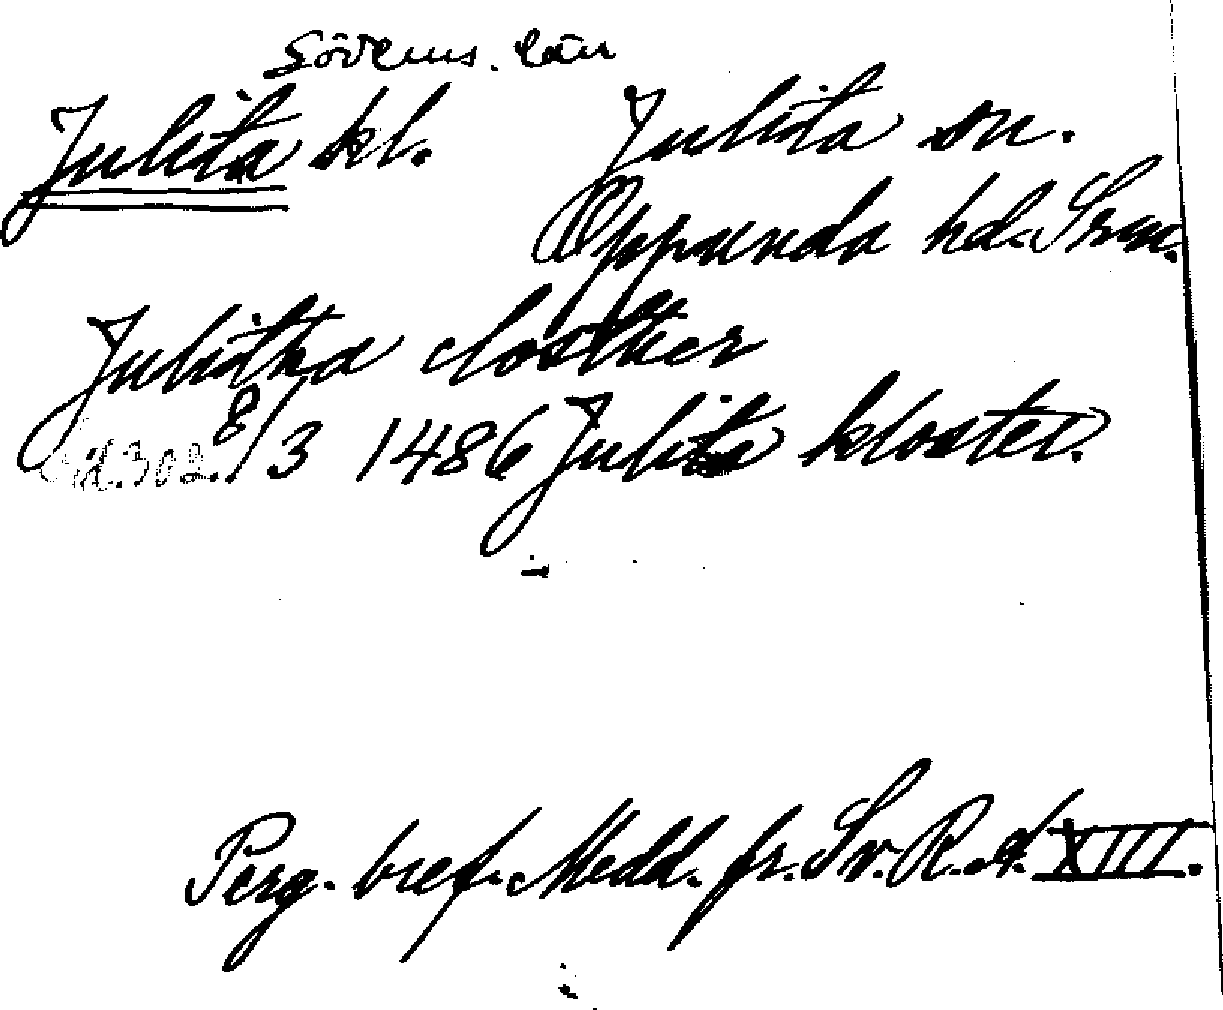 Söderms. län
Julita kl. Julita sn.
Oppunda hd. Srm.
Julittha closther
Sid. 302. 8/3 1486 Julita kloster.
Perg. bref. Medd. fr. Sv. R. A. XIII.